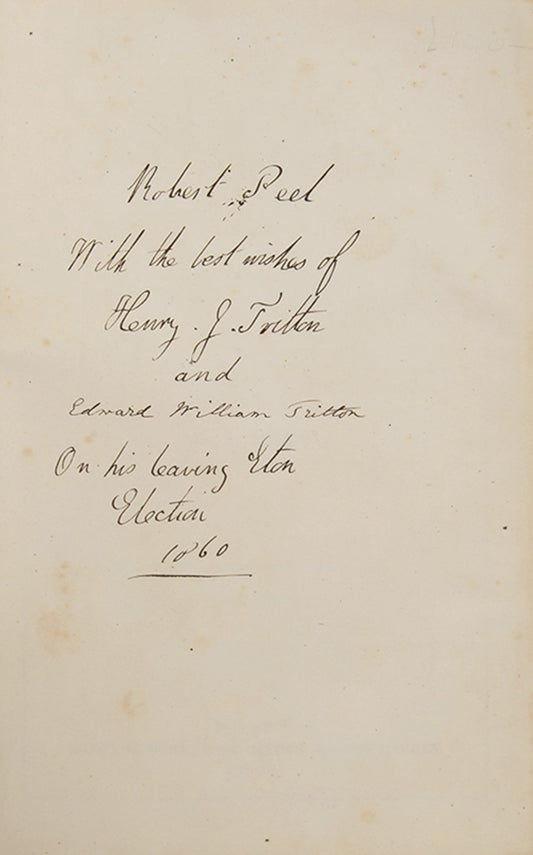 Robert Peel
With the best wishes of
Henry . J . Tritton
and
Edward William Tritton
On his leaving Eton
Election
1860